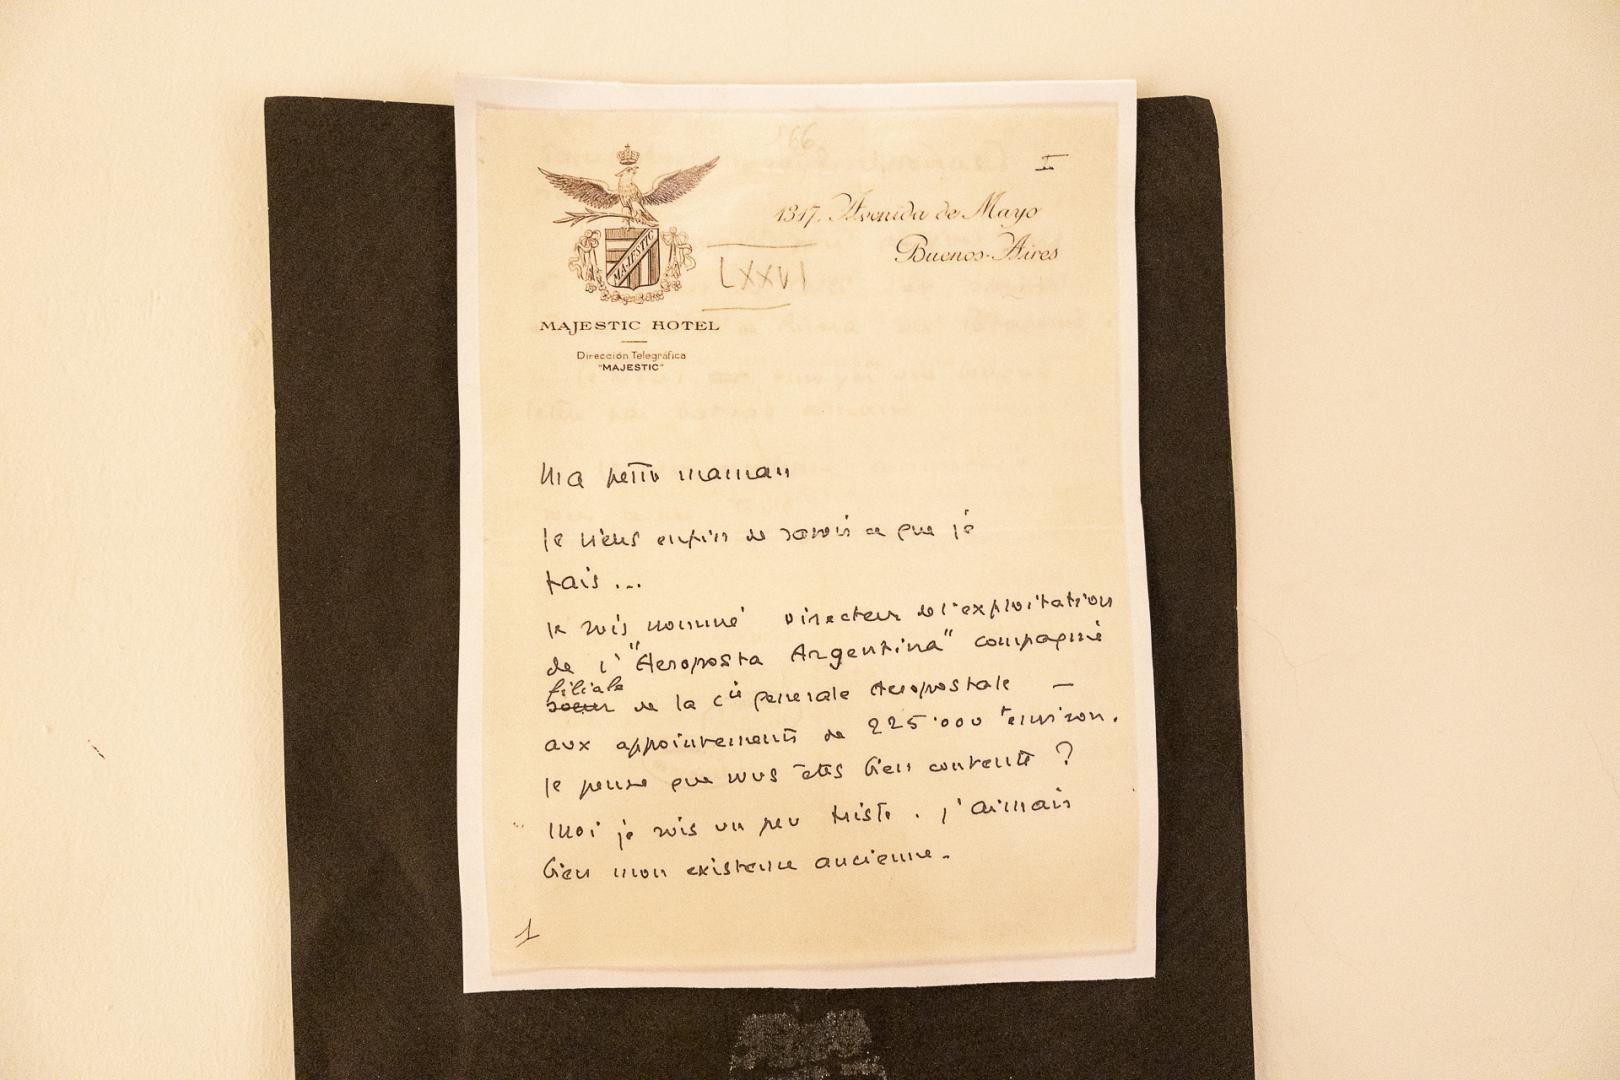 I
1317, Avenida de Mayo
Buenos-Aires
MAJESTIC
LXXVI
MAJESTIC HOTEL
Dirección Telegráfica
"MAJESTIC"
Ma petite maman
Je viens enfin de savoir ce que je
fais ...
Je suis nommé Directeur de l'exploitation
de l'"Aeroposta Argentina" compagnie
filiale
soeur de la Cie generale Aeropostale —
aux appointements de 225.000 f environ.
Je pense que vous êtes bien contente ?
Moi je suis un peu triste. J'aimais
bien mon existence ancienne.
1